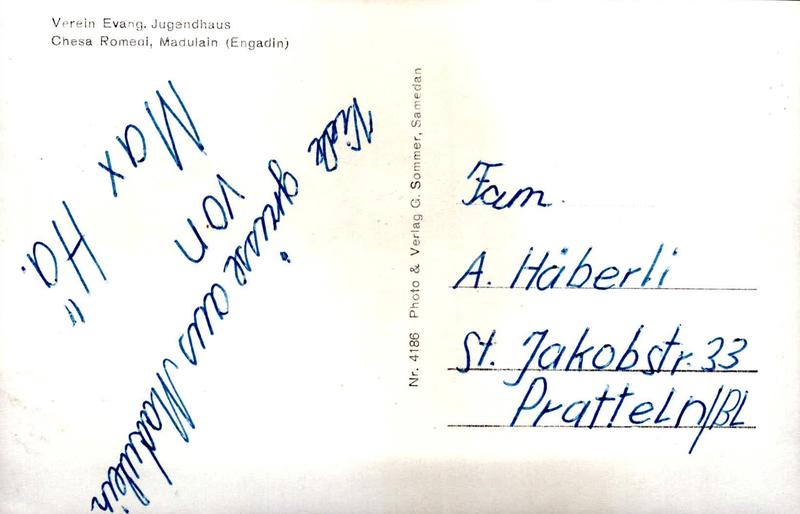 Verein Evang. Jugendhaus
Chesa Romedi, Madulain (Engadin)
Viele grüsse aus Madulein
von
Max Hä
Nr. 4186 Photo & Verlag G. Sommer, Samedan
Fam.
A. Häberli
St. Jakobstr. 33
Pratteln/BL